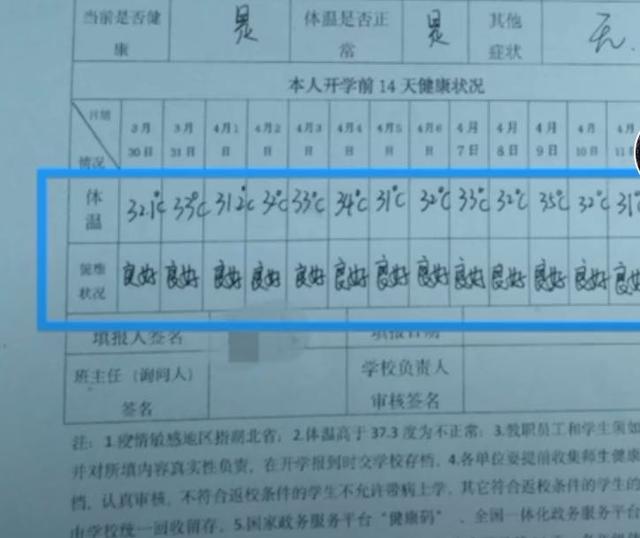 当前是否健康 是 体温是否正常 是 其他症状 无.
本人开学前 14 天健康状况
日期 情况 3月30日 3月31日 4月1日 4月2日 4月3日 4月4日 4月5日 4月6日 4月7日 4月8日 4月9日 4月10日 4月11
体温 32.1℃ 33℃ 31.2℃ 34℃ 33℃ 34℃ 31℃ 32℃ 33℃ 32℃ 35℃ 32℃ 31℃
健康状况 良好 良好 良好 良好 良好 良好 良好 良好 良好 良好 良好 良好 良好
填报人签名 填报日期
班主任（询问人）签名 学校负责人审核签名
注：1.疫情敏感地区指湖北省；2.体温高于 37.3 度为不正常；3.教职员工和学生须如
并对所填内容真实性负责，在开学报到时交学校存档。4.各单位要提前收集师生健康
档，认真审核，不符合返校条件的学生不允许带病上学，其它符合返校条件的学生的
由学校统一回收留存。5.国家政务服务平台“健康码”、全国一体化政务服务平